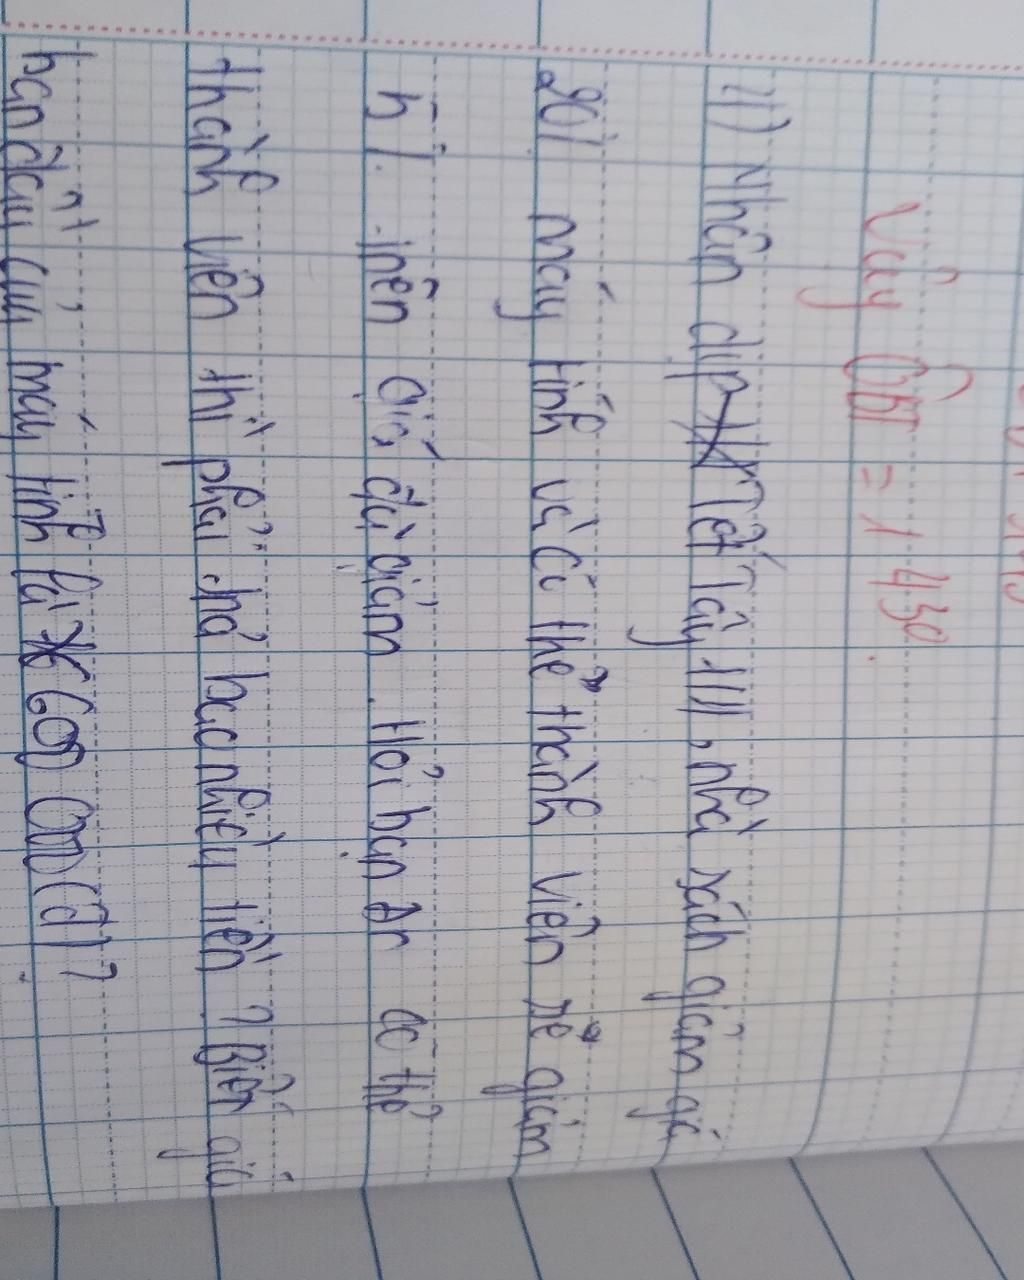 Vậy = 1 430.
4) Nhân dịp Tết Tây 1/1, nhà sách giảm giá
20% máy tính và có thẻ thành viên sẽ giảm
5%. trên giá đã giảm. Hỏi bạn An có thẻ
thành viên thì phải trả bao nhiêu tiền? Biết giá
ban đầu của máy tính là 600 000 (đ)?